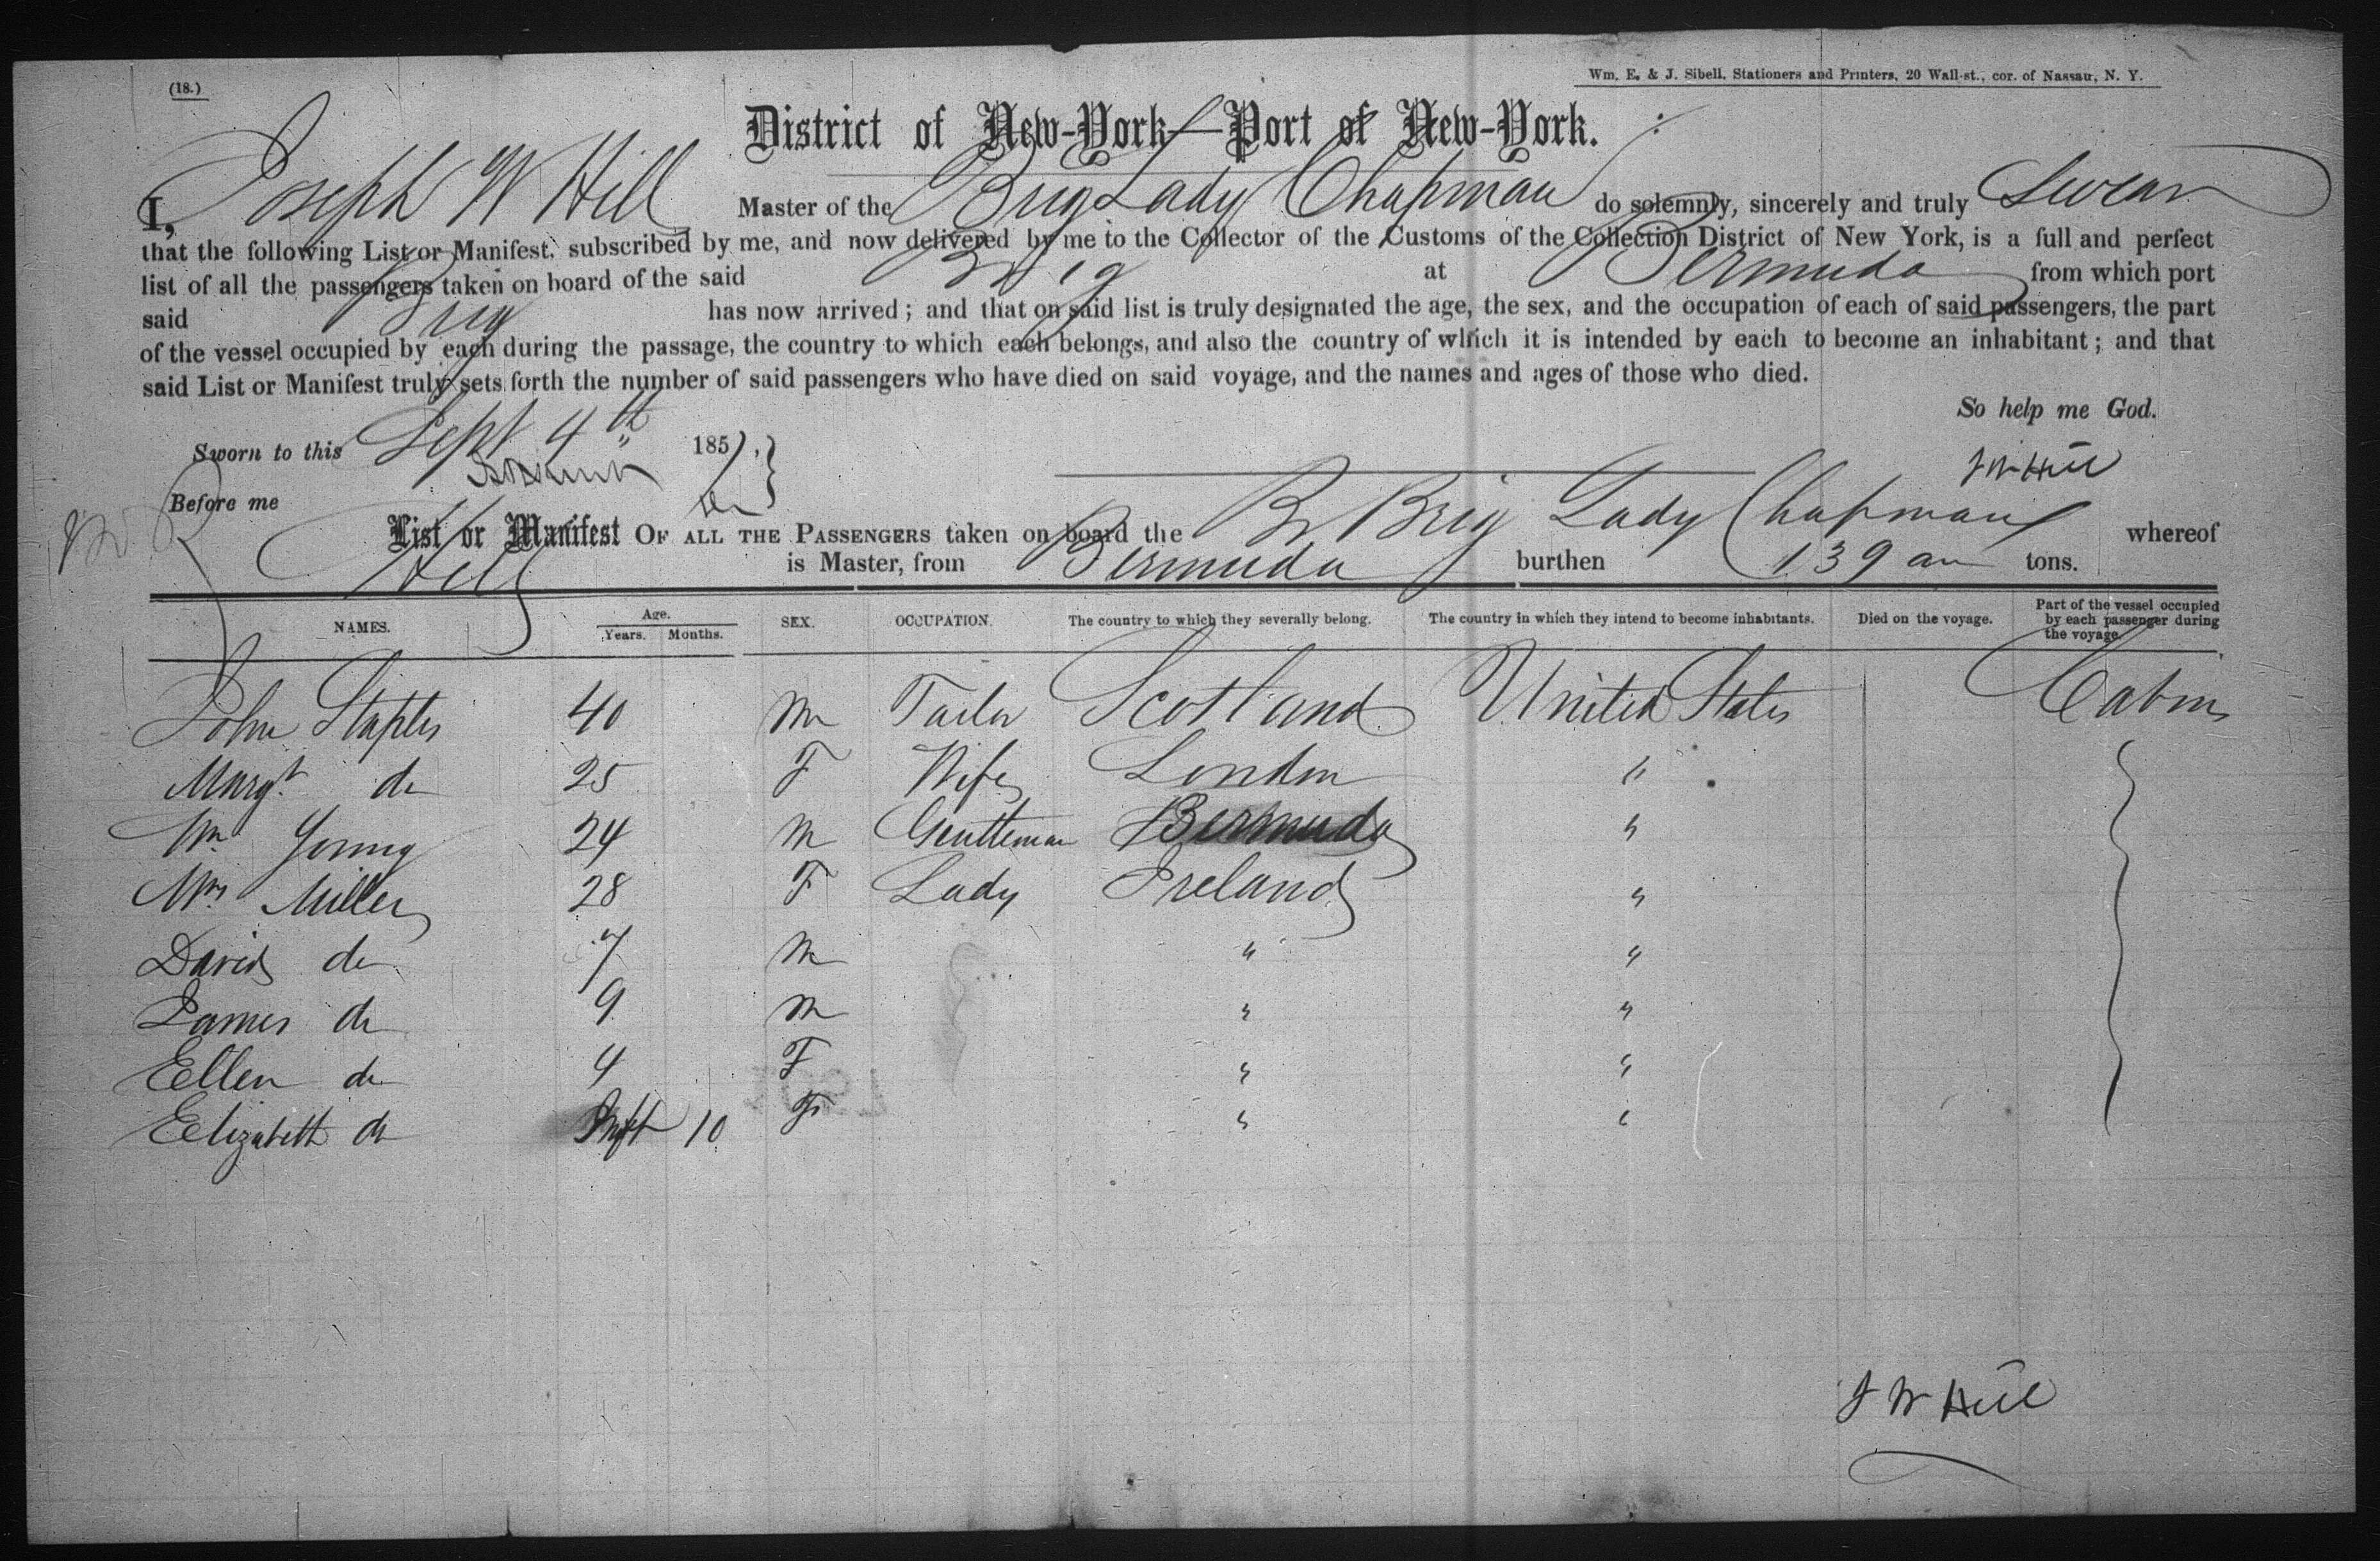 (18.)
Wm. E. & J. Sibell, Stationers and Printers, 20 Wall-st., cor. of Nassau, N. Y.
District of New-York—Port of New-York.
I, Joseph W Hill Master of the Brig Lady Chapman do solemnly, sincerely and truly Swear
that the following List or Manifest, subscribed by me, and now delivered by me to the Collector of the Customs of the Collection District of New York, is a full and perfect
list of all the passengers taken on board of the said Brig at Bermuda from which port
said Brig has now arrived; and that on said list is truly designated the age, the sex, and the occupation of each of said passengers, the part
of the vessel occupied by each during the passage, the country to which each belongs, and also the country of which it is intended by each to become an inhabitant; and that
said List or Manifest truly sets forth the number of said passengers who have died on said voyage, and the names and ages of those who died.
So help me God.
Sworn to this Sept 4th 1857,
J W Hill
Before me
List or Manifest OF ALL THE PASSENGERS taken on board the Br Brig Lady Chapman whereof
J W Hill is Master, from Bermuda burthen 139 tons.
NAMES. Age. Years. Months. SEX. OCCUPATION. The country to which they severally belong. The country in which they intend to become inhabitants. Died on the voyage. Part of the vessel occupied by each passenger during the voyage.
John Staples 40 M Tailor Scotland United States Cabin
Margt do 25 F Wife London "
Mr Young 24 M Gentleman Bermuda "
Mrs Miller 28 F Lady Ireland "
David do 7 M " "
James do 9 M " "
Ellen do 4 F " "
Elizabeth do Inft 10 F " "
J W Hill